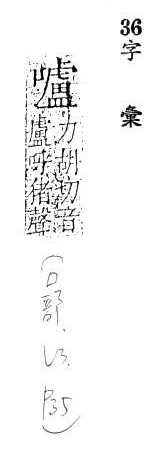 36
字彙
嚧
力胡切音
盧呼猪聲
(口部,